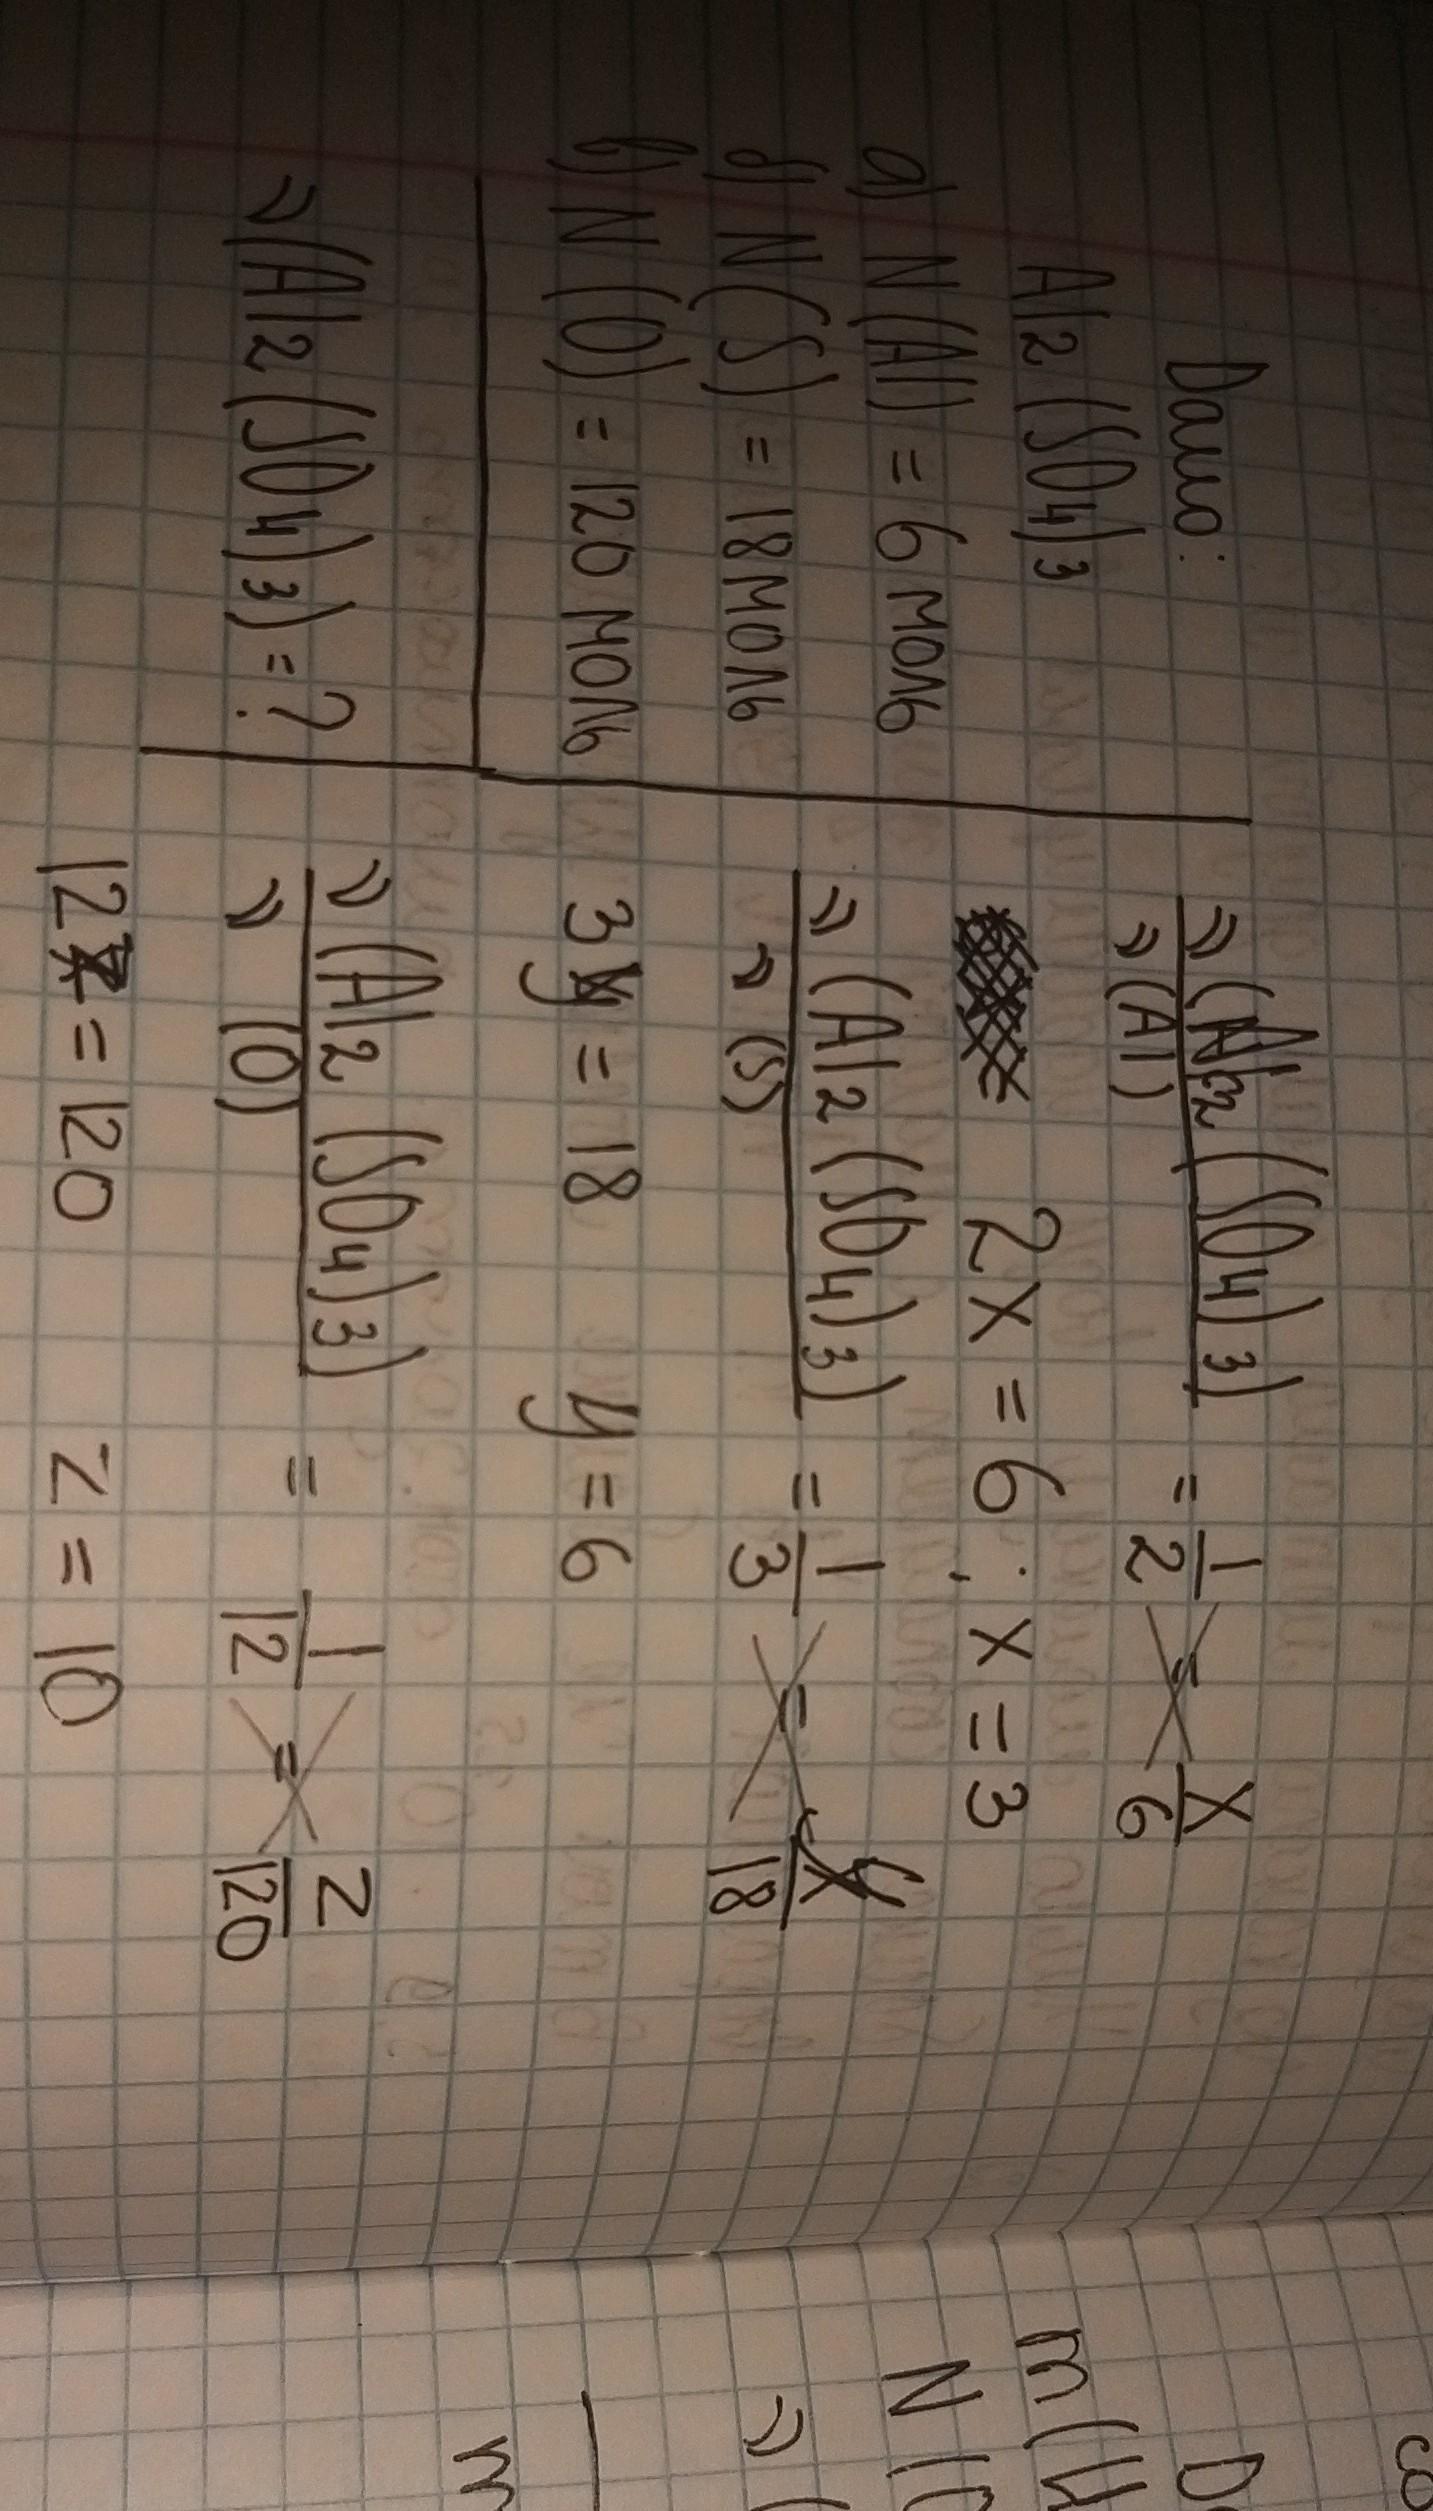 Дано:
Al2(SO4)3
а) N(Al) = 6 моль
б) N(S) = 18 моль
в) N(O) = 120 моль
ν(Al2(SO4)3) = ?
ν(Al2(SO4)3) / ν(Al) = 1/2 = x/6
2x = 6; x = 3
ν(Al2(SO4)3) / ν(S) = 1/3 = y/18
3y = 18 y = 6
ν(Al2(SO4)3) / ν(O) = 1/12 = z/120
12z = 120 z = 10
m
N
ν(
m